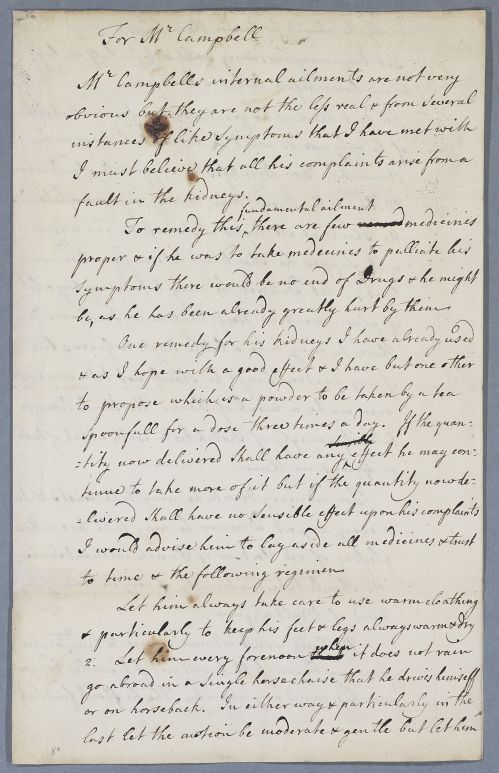 For Mr Campbell
Mr Campbells internal ailments are not very
obvious but they are not the less real & from several
instances of like Symptoms that I have met with
I must believe that all his complaints arise from a
fault in the kidneys.
fundamental ailment
To remedy this, there are few medicines
proper & if he was to take medecines to palliate his
symptoms there would be no end of Drugs & he might
be, as he has been already greatly hurt by them
One remedy for his kidneys I have already used
& as I hope with a good effect & I have but one other
to propose which is a powder to be taken by a tea
spoonfull for a dose three times a day. If the quan-
-tity now delivered Shall have any effect he may con-
tinue to take more of it but if the quantity now de-
-livered Shall have no Sensible effect upon his complaints
I would advise him to lay aside all medicines & trust
to time & the following regimen
Let him always take care to use warm cloathing
& particularly to keep his feet & legs always warm & dry
2. Let him every forenoon when it does not rain
go abroad in a single horse chaise that he drives himself
or on horseback. In either way & particularly in the
last let the motion be moderate & gentle but let him